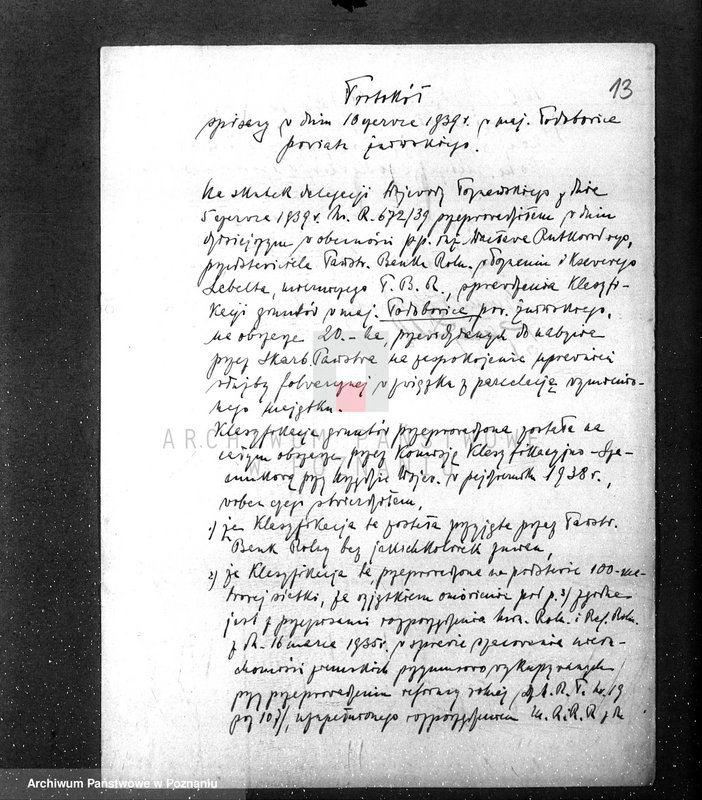 13
Protokół
spisany w dniu 10 czerwca 1939 r. w maj. Podoborice
powiatu żnińskiego.
Na skutek delegacji Wojewody Poznańskiego z dnia
5 czerwca 1939 r. Nr. R. 672/39 przeprowadziłem w dniu
dzisiejszym w obecności p.p. inż. Rutkowskiego,
przedstawiciela Państw. Banku Roln. w Poznaniu i Ksawerego
Lebelta, P. B. R., sprawdzenia klasyfi-
kacji gruntów w maj. Podoborice pow. żnińskiego,
na obszarze 20.- ha, przewidzianych do nabycia
przez Skarb Państwa na zaspokojenie uprawnień
służby folwarcznej w związku z parcelacją wymienio-
nego majątku.
Klasyfikacja gruntów przeprowadzona została na
całym obszarze przez Komisję Klasyfikacyjno-Sza-
cunkową przy Urzędzie Wojew. w październiku 1938 r.,
wobec czego stwierdziłem,
1) że klasyfikacja ta została przyjęta przez Państw.
Bank Rolny bez jakichkolwiek zmian,
2) że klasyfikacja ta, przeprowadzona na podstawie 100-me-
trowej siatki, za wyjątkiem omówienia pod p. 3/ zgodna
jest z przepisami rozporządzenia Min. Roln. i Ref. Roln.
z dn. 16 marca 1935 r. w sprawie szacowania nieru-
chomości ziemskich przymusowo wykupywanych
przy przeprowadzeniu reformy rolnej /Dz. U. R. P. Nr. 19
poz 107/, uzupełnionego rozporządzeniem M. R. R. R. z dn
ARCHIWUM PAŃSTWOWE
W POZNANIU
Archiwum Państwowe w Poznaniu